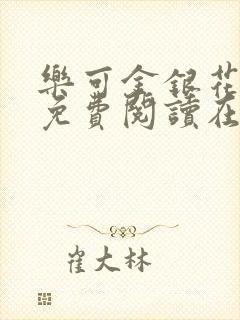 樂可金銀花
免費閱讀在
崔大林